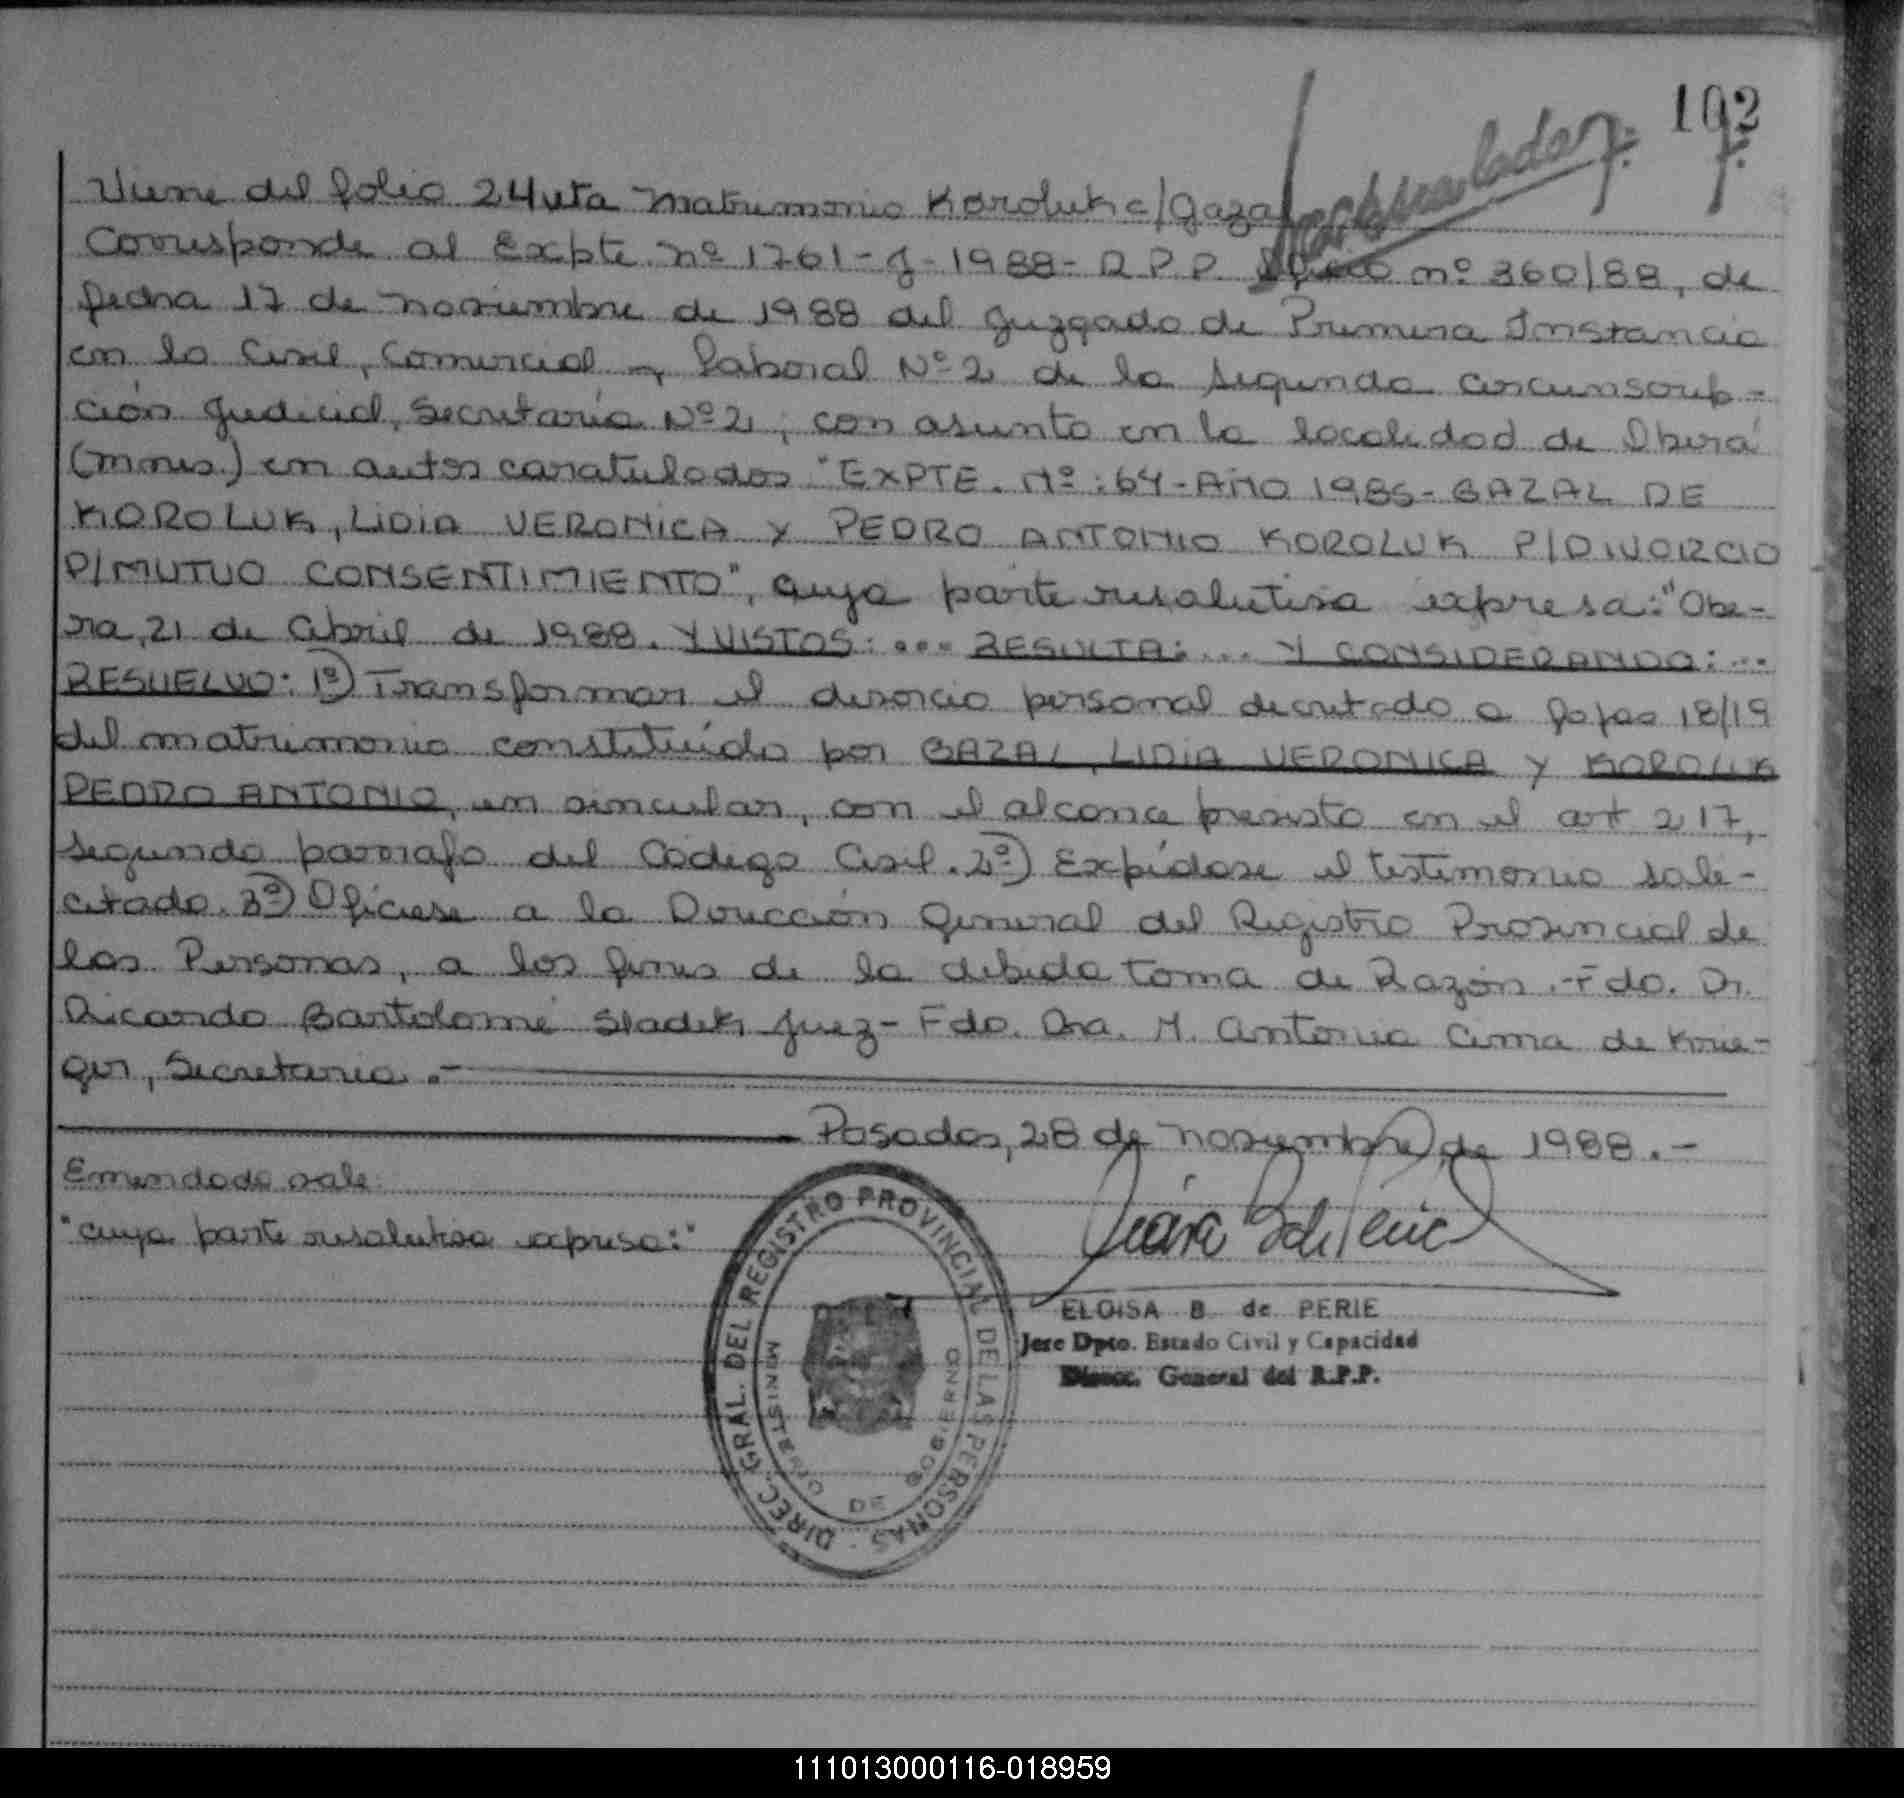 102
Viene del folio 24 vta Matrimonio Koroluk c/Gazal
Corresponde al Expte nº 1761-J-1988- R.P.P. Oficio nº 360/88, de
fecha 17 de noviembre de 1988 del Juzgado de Primera Instancia
en lo Civil, Comercial y Laboral Nº 2 de la Segunda Circunscrip-
ción Judicial, Secretaría Nº 2, con asunto en la localidad de Oberá
(Mnes.) en autos caratulados "EXPTE. Nº: 64-AÑO 1985- GAZAL DE
KOROLUK, LIDIA VERONICA Y PEDRO ANTONIO KOROLUK P/DIVORCIO
P/MUTUO CONSENTIMIENTO", cuya parte resolutiva expresa: "Obe-
ra, 21 de Abril de 1988. Y VISTOS: ... RESULTA: ... Y CONSIDERANDO: ...
RESUELVO: 1º) Transformar el divorcio personal decretado a fojas 18/19
del matrimonio constituído por GAZAL, LIDIA VERONICA Y KOROLUK
PEDRO ANTONIO, en vincular, con el alcance previsto en el art 217,
segundo parrafo del Codigo Civil. 2º) Expídase el testimonio soli-
citado. 3º) Ofíciese a la Dirección General del Registro Provincial de
las Personas, a los fines de la debida toma de Razón.-Fdo. Dr.
Ricardo Bartolomé Sladek Juez- Fdo. Dra. M. Antonia Cima de Krie-
ger, Secretaria.-
Posadas, 28 de noviembre de 1988.-
Emendado vale:
"cuya parte resolutiva expresa:"
DIREC. GRAL. DEL REGISTRO PROVINCIAL DE LAS PERSONAS -
MINISTERIO DE GOBIERNO
ELOISA B. de PERIE
Jefe Dpto. Estado Civil y Capacidad
Direcc. General del R.P.P.
111013000116-018959